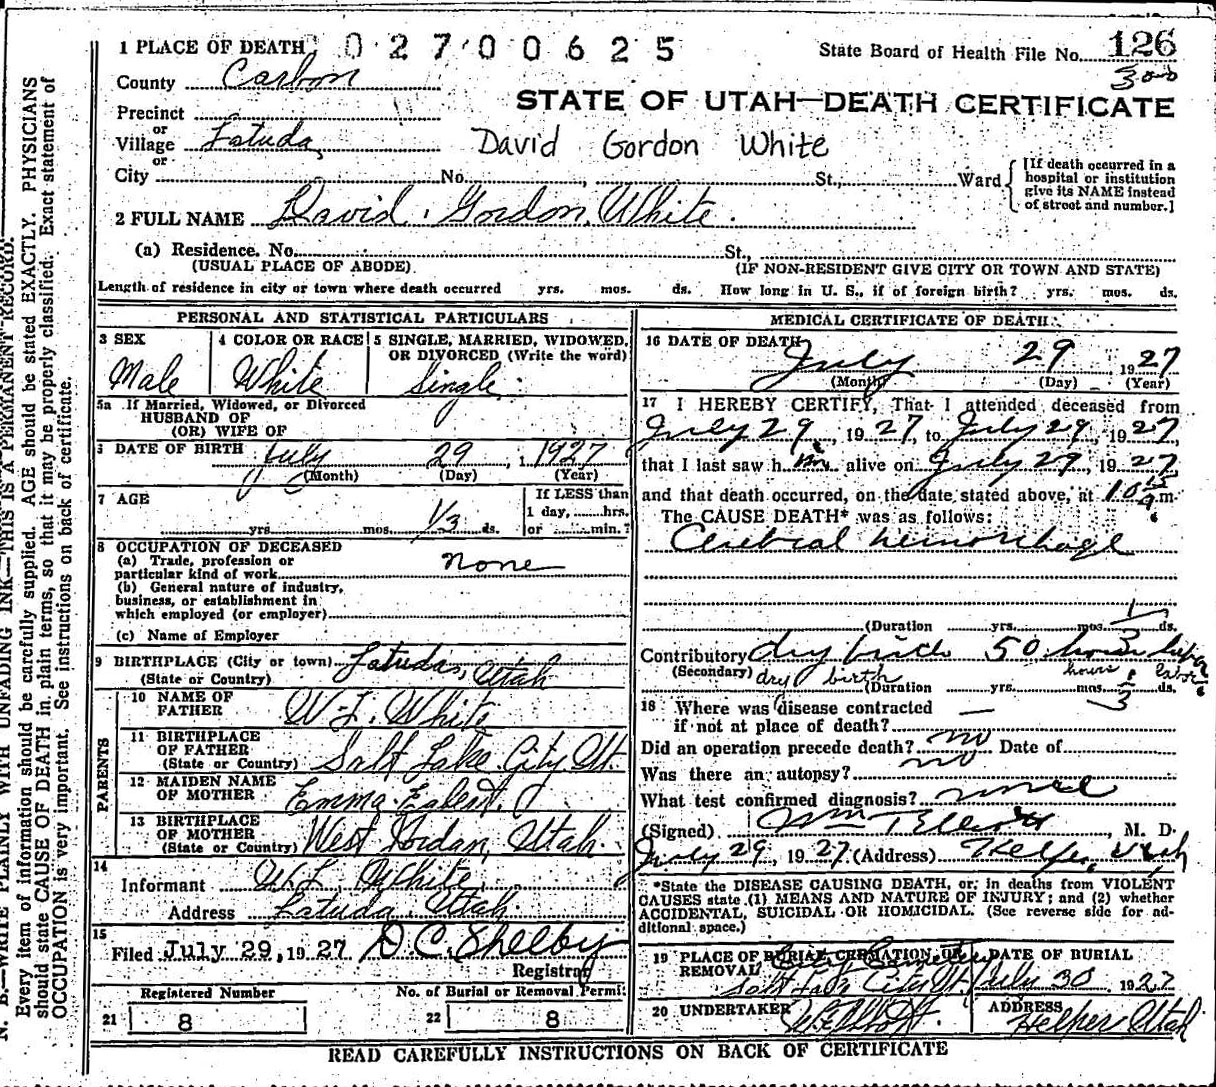 1 PLACE OF DEATH 02700625 State Board of Health File No. 126
County Carbon 300
STATE OF UTAH—DEATH CERTIFICATE
Precinct
or
Village Latuda, David Gordon White
or
City No. St., Ward [If death occurred in a hospital or institution give its NAME instead of street and number.]
2 FULL NAME David Gordon White
(a) Residence. No. St.,
(USUAL PLACE OF ABODE) (IF NON-RESIDENT GIVE CITY OR TOWN AND STATE)
Length of residence in city or town where death occurred yrs. mos. ds. How long in U. S., if of foreign birth? yrs. mos. ds.
PERSONAL AND STATISTICAL PARTICULARS
3 SEX 4 COLOR OR RACE 5 SINGLE, MARRIED, WIDOWED, OR DIVORCED (Write the word)
Male White Single
5a If Married, Widowed, or Divorced
HUSBAND OF
(OR) WIFE OF
DATE OF BIRTH July 29, 1927
(Month) (Day) (Year)
7 AGE If LESS than
1 day, hrs.
yrs. mos. 1/3 ds. or min.?
8 OCCUPATION OF DECEASED
(a) Trade, profession or
particular kind of work none
(b) General nature of industry,
business, or establishment in
which employed (or employer)
(c) Name of Employer
9 BIRTHPLACE (City or town) Latuda, Utah
(State or Country)
PARENTS
10 NAME OF
FATHER W. L. White
11 BIRTHPLACE
OF FATHER
(State or Country) Salt Lake City Ut.
12 MAIDEN NAME
OF MOTHER Emma
13 BIRTHPLACE
OF MOTHER
(State or Country) West Jordan, Utah.
14
Informant W. L. White
Address Latuda, Utah.
15
Filed July 29, 1927 D.C. Shelby
Registrar
Registered Number No. of Burial or Removal Permit
21 8 22 8
MEDICAL CERTIFICATE OF DEATH
16 DATE OF DEATH
July 29 1927
(Month) (Day) (Year)
17 I HEREBY CERTIFY, That I attended deceased from
July 29, 1927, to July 29, 1927,
that I last saw him alive on July 29, 1927
and that death occurred, on the date stated above, at 10 15 m
The CAUSE DEATH* was as follows:
Cerebral hemorrhage
(Duration yrs. mos. 1/3 ds.
Contributory dry birth 50 hours labor
(Secondary) dry birth hours labor
(Duration yrs. mos. 1/3 ds.
18 Where was disease contracted
if not at place of death? —
Did an operation precede death? no Date of
Was there an autopsy? no
What test confirmed diagnosis?
(Signed) Wm T Elliott, M. D.
July 29, 1927 (Address) Helper, Utah
*State the DISEASE CAUSING DEATH, or, in deaths from VIOLENT
CAUSES state (1) MEANS AND NATURE OF INJURY; and (2) whether
ACCIDENTAL, SUICIDAL OR HOMICIDAL. (See reverse side for ad-
ditional space.)
19 PLACE OF BURIAL, CREMATION, OR REMOVAL DATE OF BURIAL
City Cemetery
Salt Lake City Ut July 30 1927
20 UNDERTAKER ADDRESS
Helper Utah
READ CAREFULLY INSTRUCTIONS ON BACK OF CERTIFICATE
N. B.—WRITE PLAINLY WITH UNFADING INK—THIS IS A PERMANENT RECORD.
Every item of information should be carefully supplied. AGE should be stated EXACTLY. PHYSICIANS
should state CAUSE OF DEATH in plain terms, so that it may be properly classified. Exact statement of
OCCUPATION is very important. See instructions on back of certificate.